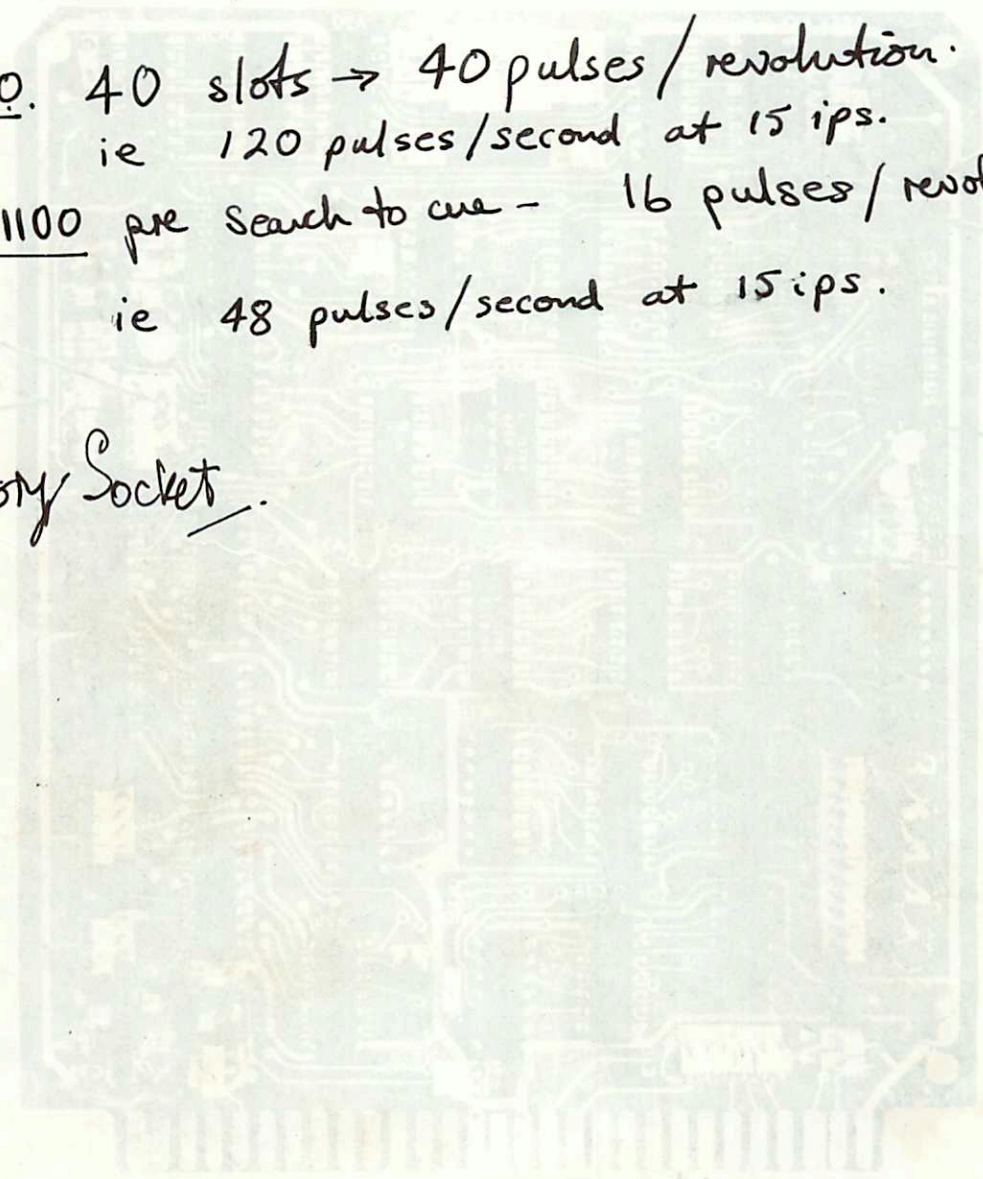 0. 40 slots → 40 pulses/revolution.
ie 120 pulses/second at 15 ips.
1100 pre search to cue - 16 pulses/revol
ie 48 pulses/second at 15 ips.
ory Socket.